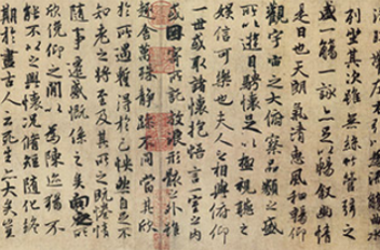 湍暎帶左右引以為流觴曲水
列坐其次雖無絲竹管弦之
盛一觴一詠亦足以暢敘幽情
是日也天朗氣清惠風和暢仰
觀宇宙之大俯察品類之盛
所以遊目騁懷足以極視聽之
娛信可樂也夫人之相與俯仰
一世或取諸懷抱悟言一室之內
或因寄所託放浪形骸之外雖
趣舍萬殊靜躁不同當其欣
於所遇蹔得於己怏然自足不
知老之將至及其所之既惓情
隨事遷感慨係之矣向之所
欣俛仰之閒以為陳迹猶不
能不以之興懷況脩短隨化終
期於盡古人云死生亦大矣豈